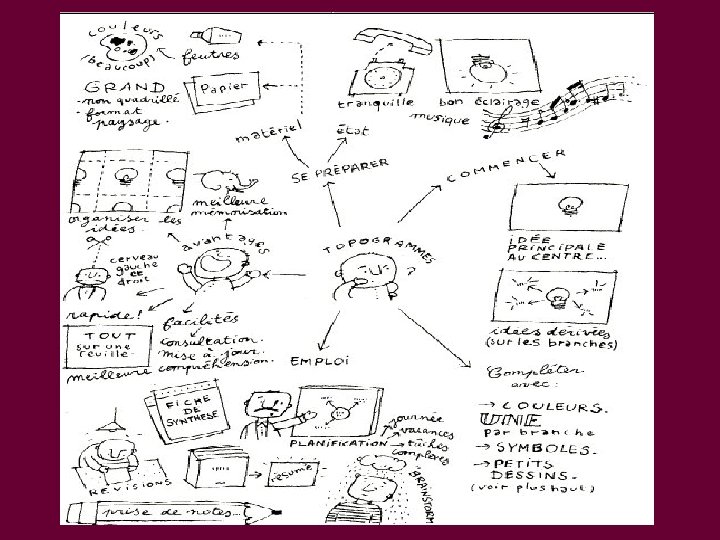 couleurs
(beaucoup)
feutres
GRAND
- non quadrillé
- format
paysage.
Papier
matériel
tranquille
bon éclairage
musique
état
SE PRÉPARER
COMMENCER
IDÉE
PRINCIPALE
AU CENTRE...
idées dérivées
(sur les branches)
Compléter
avec:
→ COULEURS.
UNE
par branche
→ SYMBOLES.
→ PETITS
DESSINS.
(voir plus haut)
TOPOGRAMMES
?
avantages
meilleure
mémorisation
organiser les
idées.
cerveau
gauche
et
droit
rapide!
TOUT
sur une
feuille.
facilités
consultation.
mise à jour.
meilleure compréhension.
EMPLOI
FICHE
DE
SYNTHÈSE
PLANIFICATION
journée
vacances
tâches
complexes
RÉVISIONS
résumé
BRAINSTORM
prise de notes...